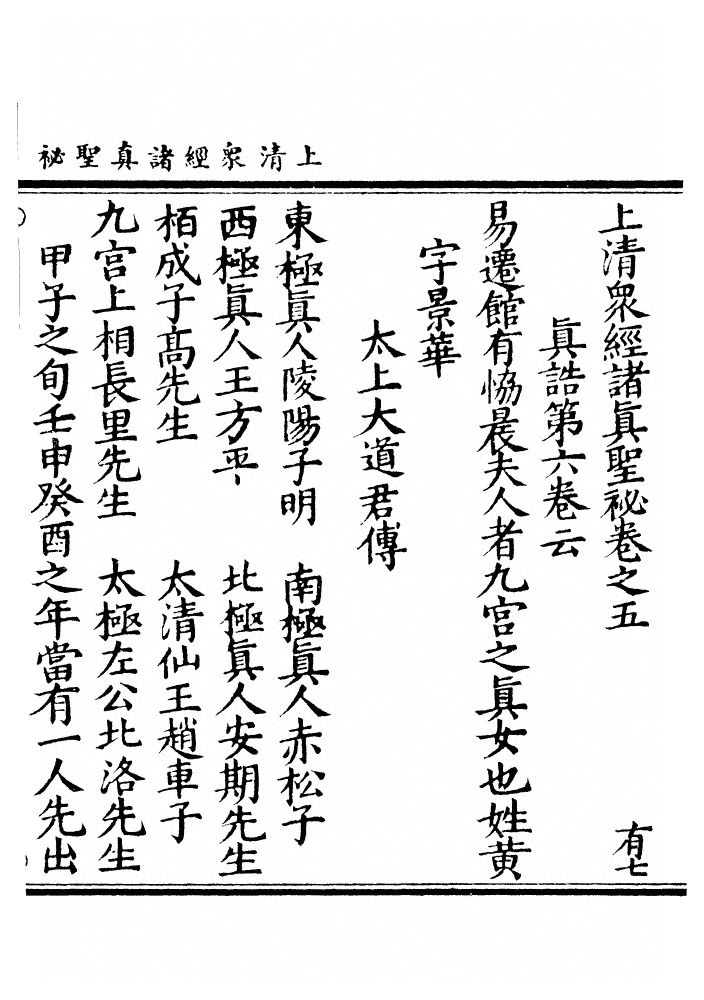 上清衆經諸真聖祕
上清衆經諸眞聖祕卷之五
有七
眞誥第六卷云
易遷館有恊晨夫人者九宮之眞女也姓黃
字景華
太上大道君傳
東極眞人陵陽子明　南極眞人赤松子
西極眞人王方平　北極眞人安期先生
栢成子髙先生　太清仙王趙車子
九宮上相長里先生　太極左公北洛先生
甲子之旬壬申癸酉之年當有一人先出